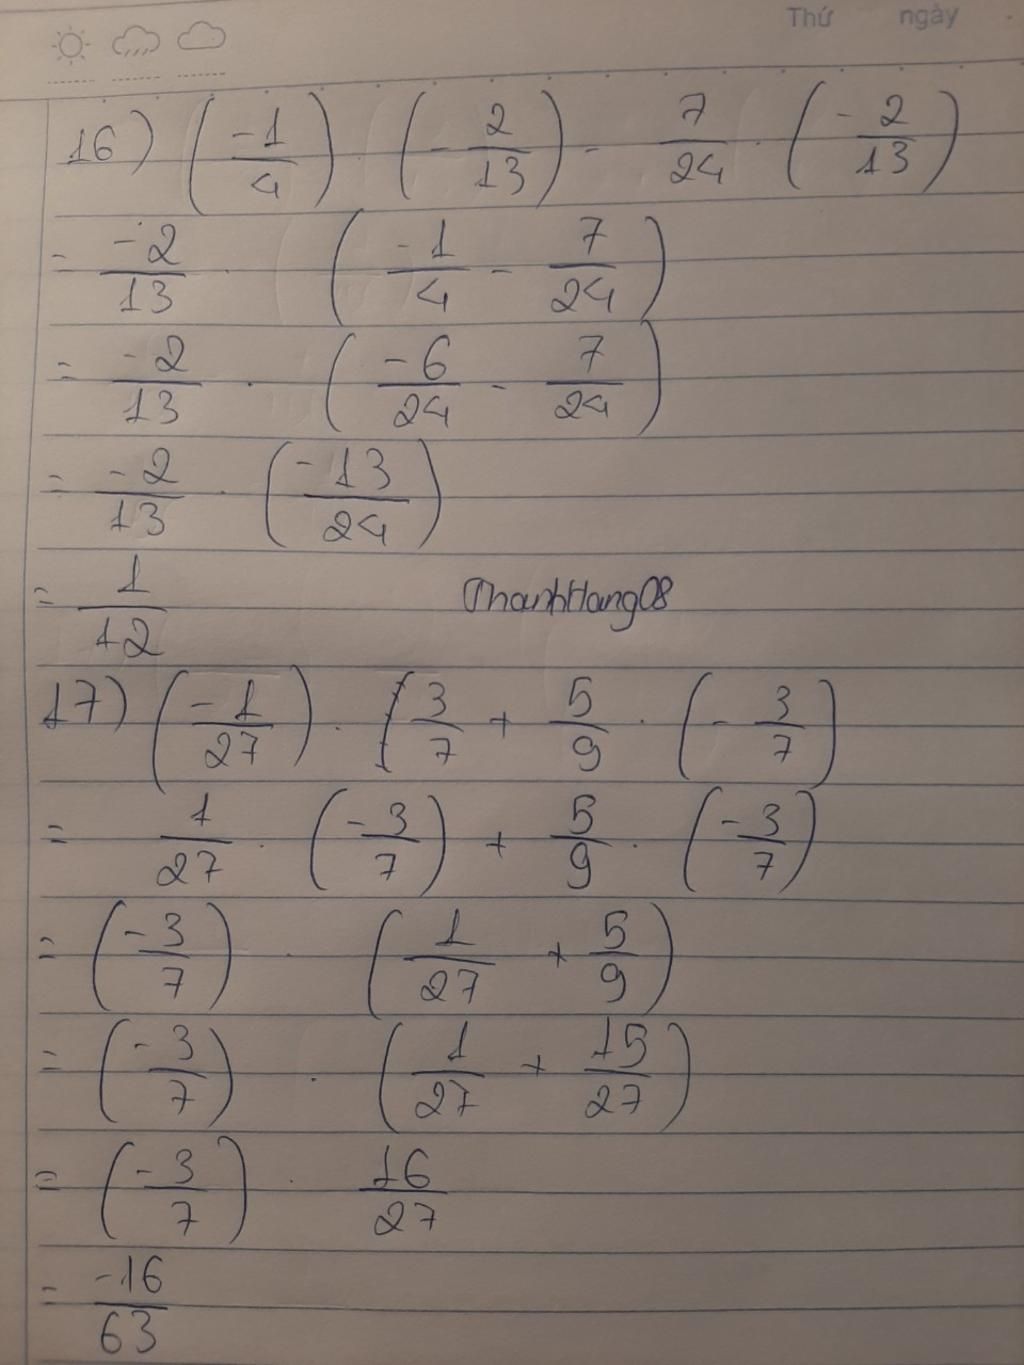 Thứ ngày
16) (-1/4) . (-2/13) - 7/24 . (-2/13)
= -2/13 . (-1/4 - 7/24)
= -2/13 . (-6/24 - 7/24)
= -2/13 . (-13/24)
= 1/12
ThanhHang08
17) (-1/27) . 3/7 + 5/9 . (-3/7)
= 1/27 . (-3/7) + 5/9 . (-3/7)
= (-3/7) . (1/27 + 5/9)
= (-3/7) . (1/27 + 15/27)
= (-3/7) . 16/27
= -16/63